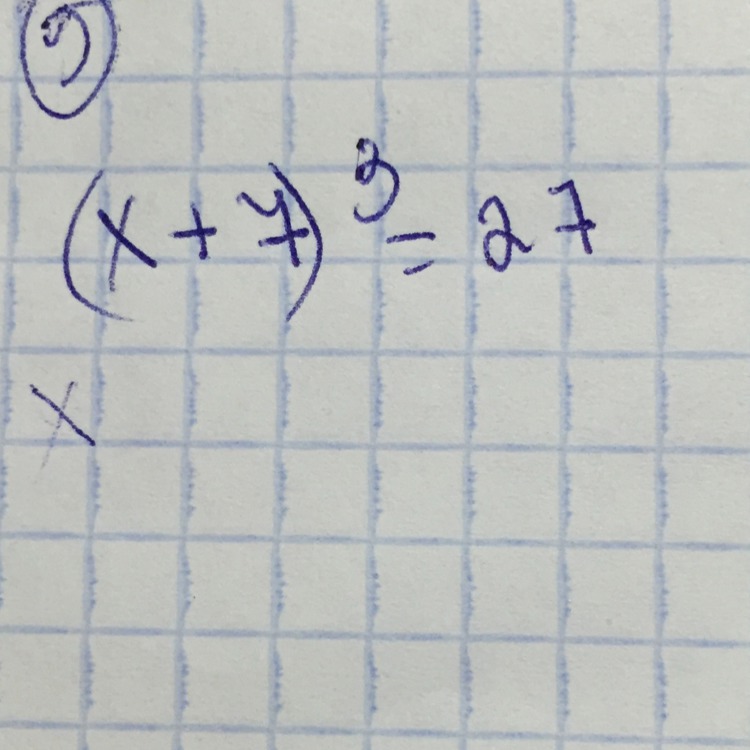 9
(x + 7)³ = 27
x